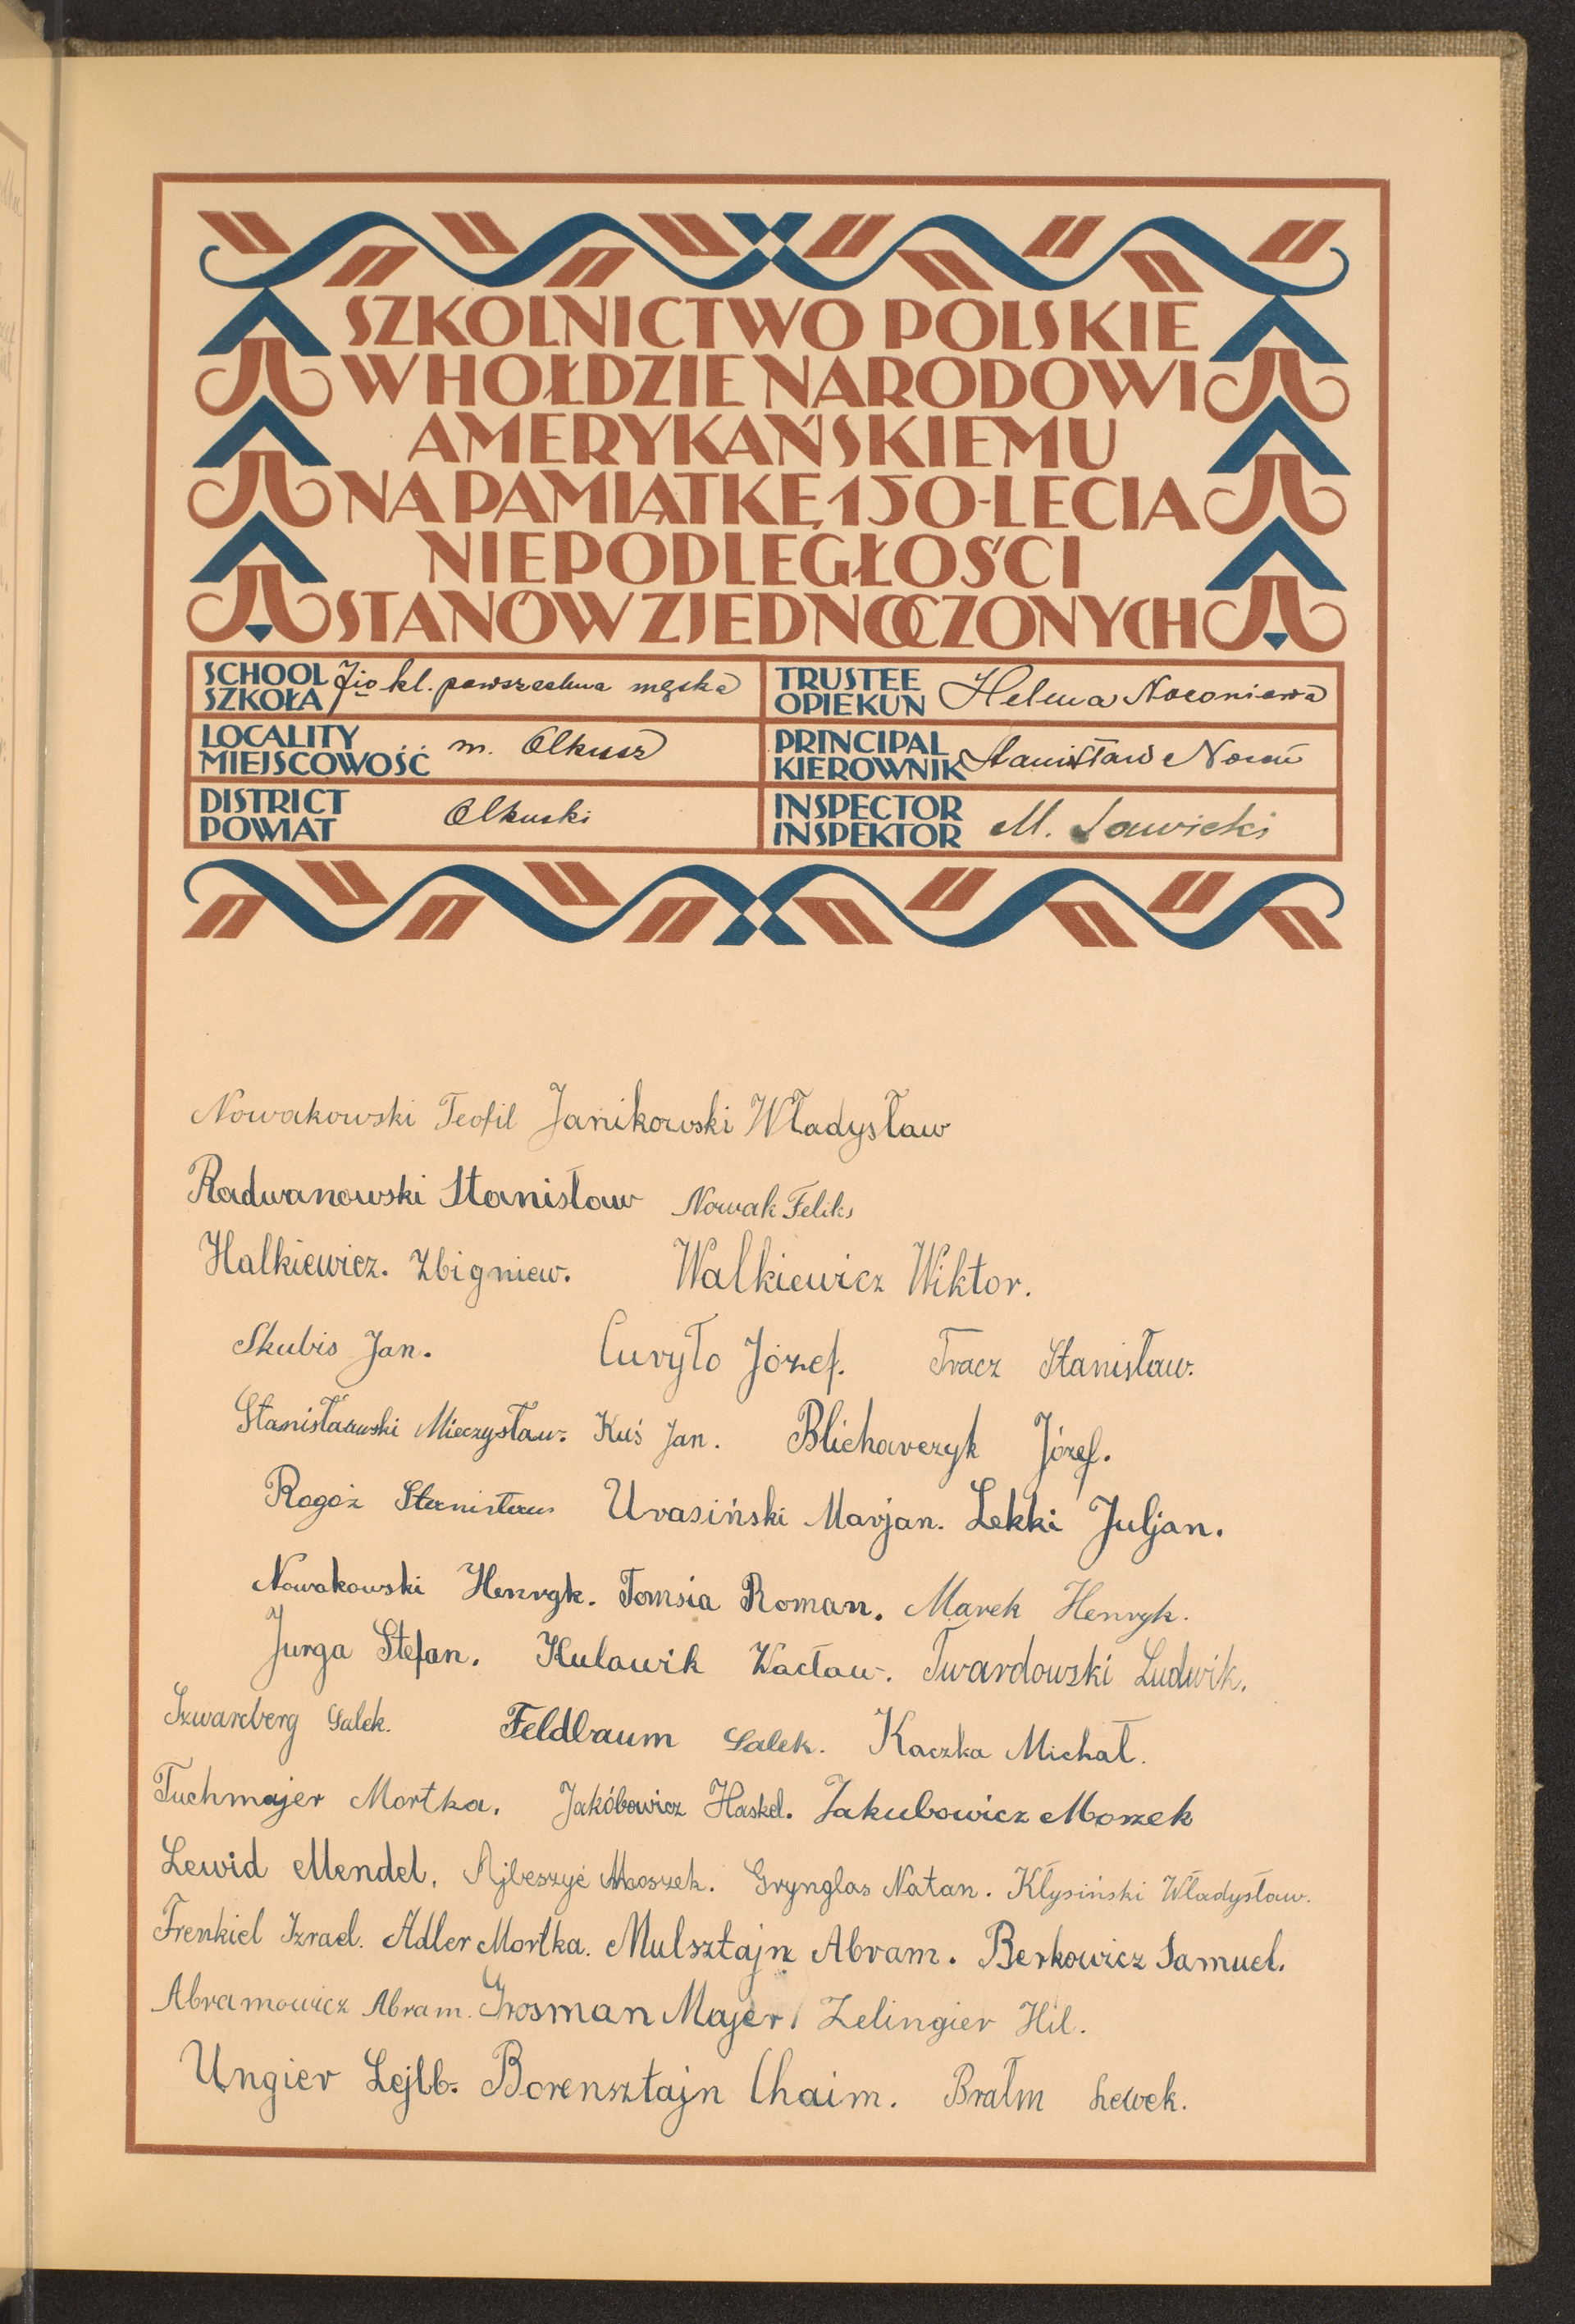 SZKOLNICTWO POLSKIE
W HOŁDZIE NARODOWI
AMERYKAŃSKIEMU
NA PAMIĄTKĘ 150-LECIA
NIEPODLEGŁOŚCI
STANÓW ZJEDNOCZONYCH
SCHOOL SZKOŁA 7io kl. powszechna męska
TRUSTEE OPIEKUN Helena Noconiowa
LOCALITY MIEJSCOWOŚĆ m. Olkusz
PRINCIPAL KIEROWNIK Stanisław Nocoń
DISTRICT POWIAT Olkuski
INSPECTOR INSPEKTOR M. Sawicki
Nowakowski Teofil Janikowski Władysław
Radwanowski Stanisław Nowak Feliks
Halkiewicz. Zbigniew. Walkiewicz Wiktor.
Skubis Jan. Curyło Józef. Tracz Stanisław.
Stanisławski Mieczysław. Kuś Jan. Blicharczyk Józef.
Rogóż Stanisław Urasiński Marjan. Lekki Juljan.
Nowakowski Henryk. Tomsia Roman. Marek Henryk.
Jurga Stefan. Kulawik Wacław. Twardowski Ludwik.
Szwarcberg Salek. Feldbaum Salek. Kaczka Michał.
Tuchmajer Mortka. Jakóbowicz Haskel. Jakubowicz Moszek
Lewid Mendel. Ajbeszyć Moszek. Grynglas Natan. Kłysiński Władysław.
Frenkiel Izrael. Adler Mortka. Mulsztajn Abram. Berkowicz Samuel.
Abramowicz Abram. Grosman Majer. Zelingier Hil.
Ungier Lejlb. Borensztajn Chaim. Bratm Lewek.